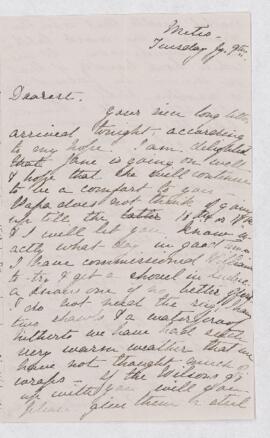 Metis.
Tuesday Jy. 9th.
Dearest.
Your nice long letter
arrived tonight, according
to my hope. I am delighted
that Jane is going on well
& hope that she will continue
to be a comfort to you.
Papa does not think of going
up till the latter 16th or 17th
& I will let you know ex
actly what day in good time
I have commissioned William
to try & get a shovel in
a one of no better
I do not need the rug I have
two shawls & a waterproof
hitherto we have had such
very warm weather that we
have not thought much of
wraps. If the Wilsons go
up with you will you
please give them a